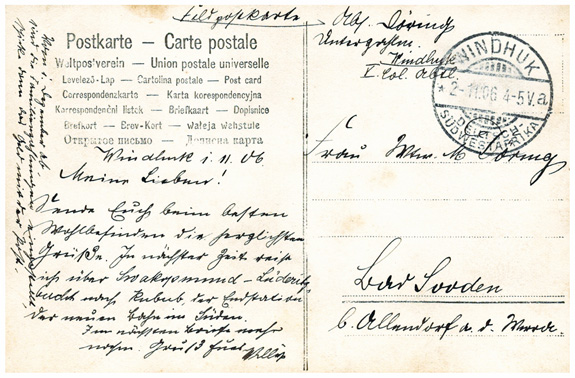 Feldpostkarte
Postkarte — Carte postale
Weltpostverein — Union postale universelle
Levelező-Lap — Cartolina postale — Post card
Correspondenzkarte — Karta korespondencyjna
Korrespondenční lístek — Briefkaart — Dopisnice
Brefkort — Brev-Kort — Waleja wehstule
Открытое письмо — Дописна карта
Windhuk i. 11. 06.
Meine Lieben!
Sende Euch beim besten
Wohlbefinden die herzlichsten
Grüße. In nächster Zeit reise
ich über Swakopmund - Lüderitz
bucht nach Kubub der Endstation
der neuen Bahn im Süden.
Im nächsten Briefe mehr
Gruß Euer Willy
Abs. Döring
Unterzahlm.
Windhuk
I. Col. Abt.
WINDHUK
* 2-11.06 4-5V. a
DEUTSCH-
SÜDWESTAFRIKA
Frau Wwe. M. Döring
Bad Sooden
b. Allendorf a. d. Werra.